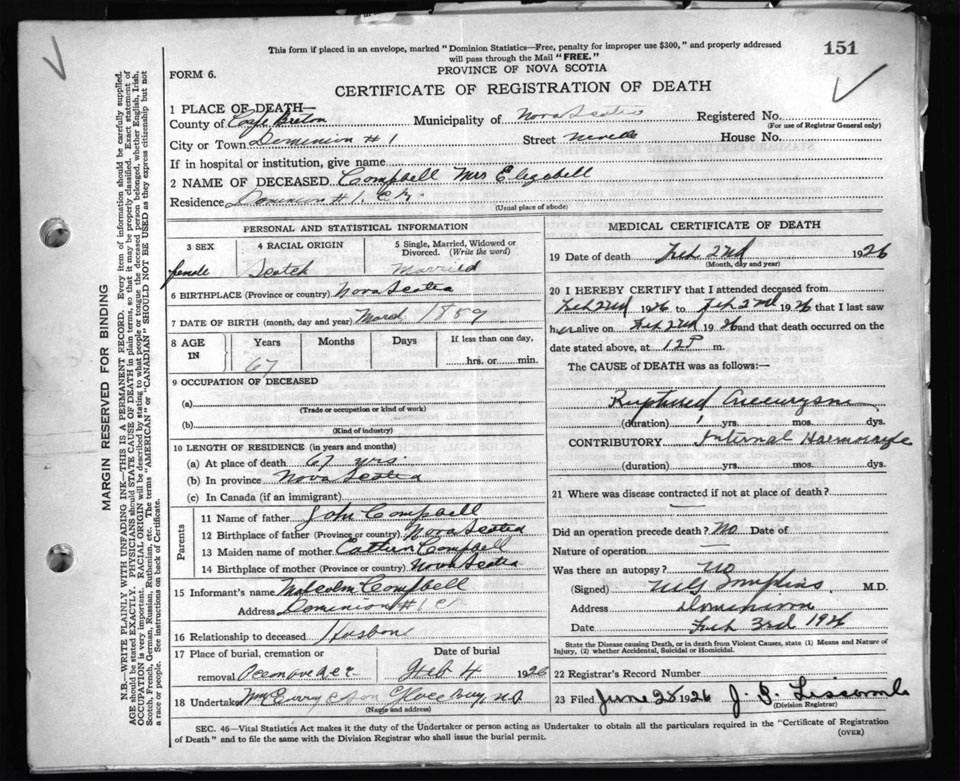 This form if placed in an envelope, marked "Dominion Statistics—Free, penalty for improper use $300," and properly addressed
will pass through the Mail "FREE."
151
FORM 6.
PROVINCE OF NOVA SCOTIA
CERTIFICATE OF REGISTRATION OF DEATH
1 PLACE OF DEATH—
County of Cape Breton Municipality of Nova Scotia Registered No.
(For use of Registrar General only)
City or Town Dominion #1 Street House No.
If in hospital or institution, give name
2 NAME OF DECEASED Campbell Mrs Elezabell
Residence Dominion #1. C.B.
(Usual place of abode)
PERSONAL AND STATISTICAL INFORMATION
3 SEX 4 RACIAL ORIGIN 5 Single, Married, Widowed or
Divorced. (Write the word)
female Scotch Married
6 BIRTHPLACE (Province or country) Nova Scotia
7 DATE OF BIRTH (month, day and year) March 1859
8 AGE IN Years Months Days If less than one day,
67 hrs. or min.
9 OCCUPATION OF DECEASED
(a)
(Trade or occupation or kind of work)
(b)
(Kind of industry)
10 LENGTH OF RESIDENCE (in years and months)
(a) At place of death 67 yrs
(b) In province Nova Scotia
(c) In Canada (if an immigrant)
Parents
11 Name of father John Campbell
12 Birthplace of father (Province or country) Nova Scotia
13 Maiden name of mother Campbell
14 Birthplace of mother (Province or country) Nova Scotia
15 Informant's name Malcolm Campbell
Address Dominion #1 C
16 Relationship to deceased
17 Place of burial, cremation or Date of burial
removal Feb 4 1926
18 Undertaker & Son Glace Bay N.S.
(Name and address)
MEDICAL CERTIFICATE OF DEATH
19 Date of death Feb 2nd 1926
(Month, day and year)
20 I HEREBY CERTIFY that I attended deceased from
Feb 2nd 1926 to Feb 2nd 1926 that I last saw
her alive on Feb 2nd 1926 and that death occurred on the
date stated above, at 12 P m.
The CAUSE of DEATH was as follows:—
Ruptured Aneurysm
(duration) yrs. mos. dys.
CONTRIBUTORY Internal Haemorrhage
(duration) yrs. mos. dys.
21 Where was disease contracted if not at place of death?
Did an operation precede death? No Date of
Nature of operation
Was there an autopsy? No
(Signed) Tompkins M.D.
Address Dominion
Date Feb 3rd 1926
State the Disease causing Death, or in death from Violent Causes, state (1) Means and Nature of
Injury, (2) whether Accidental, Suicidal or Homicidal.
22 Registrar's Record Number
23 Filed June 28 1926 J. G. Liscomb
(Division Registrar)
SEC. 46—Vital Statistics Act makes it the duty of the Undertaker or person acting as Undertaker to obtain all the particulars required in the "Certificate of Registration
of Death" and to file the same with the Division Registrar who shall issue the burial permit. (OVER)
MARGIN RESERVED FOR BINDING
N.B.—WRITE PLAINLY WITH UNFADING INK—THIS IS A PERMANENT RECORD. Every item of information should be carefully supplied.
AGE should be stated EXACTLY. PHYSICIANS should STATE CAUSE OF DEATH in plain terms, so that it may be properly classified. Exact statement of
OCCUPATION is very important. RACIAL ORIGIN will be described by stating to what people or tongue the deceased person belonged, whether English, Irish,
Scotch, French, German, Russian, Ruthenian, etc. The terms "AMERICAN" or "CANADIAN" SHOULD NOT BE USED as they express citizenship but not
a race or people. See instructions on back of Certificate.